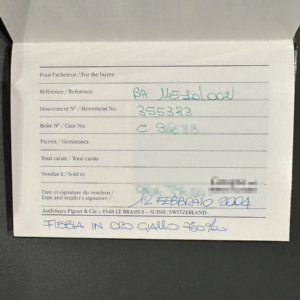 Pour l'acheteur / For the buyer
Référence / Reference BA 14570/002
Mouvement Nº / Movement No. 355383
Boîte Nº / Case No. C
Pierres / Gemstones
Total carats / Total carats
Vendue à / Sold to
Date et signature du vendeur/
Date and retailer's signature/ 12 FEBBRAIO 2001
Audemars Piguet & Cie - 1348 LE BRASSUS - SUISSE/SWITZERLAND
FIBBIA IN ORO GIALLO 750‰